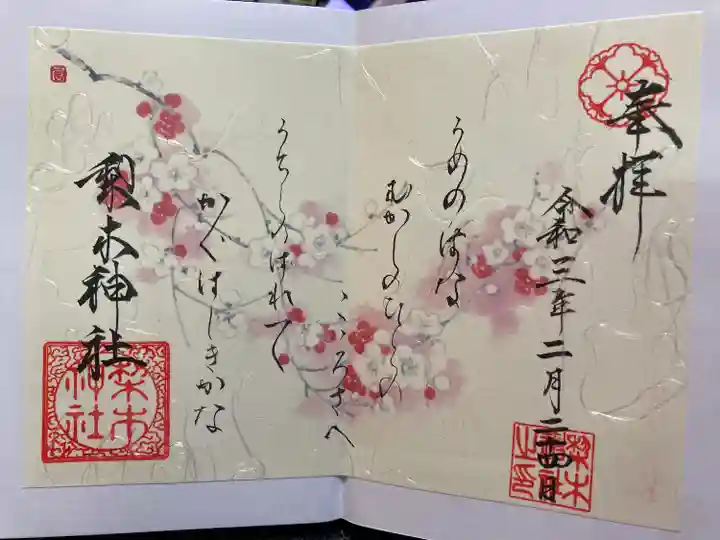 奉拝
令和三年二月二十四日
うめのはな
むかしのひとの
こゝろさへ
うちしのはれて
かぐはしきかな
梨木神社
梨木神社